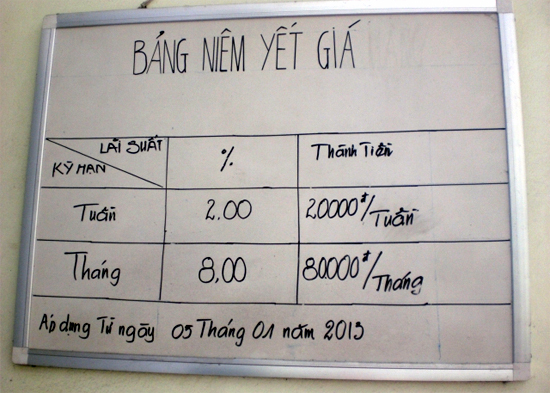 BẢNG NIÊM YẾT GIÁ
LÃI SUẤT
KỲ HẠN
%
Thành Tiền
Tuần
2.00
20000đ/Tuần
Tháng
8,00
80.000đ/Tháng
Áp dụng Từ ngày 05 Tháng 01 năm 2013